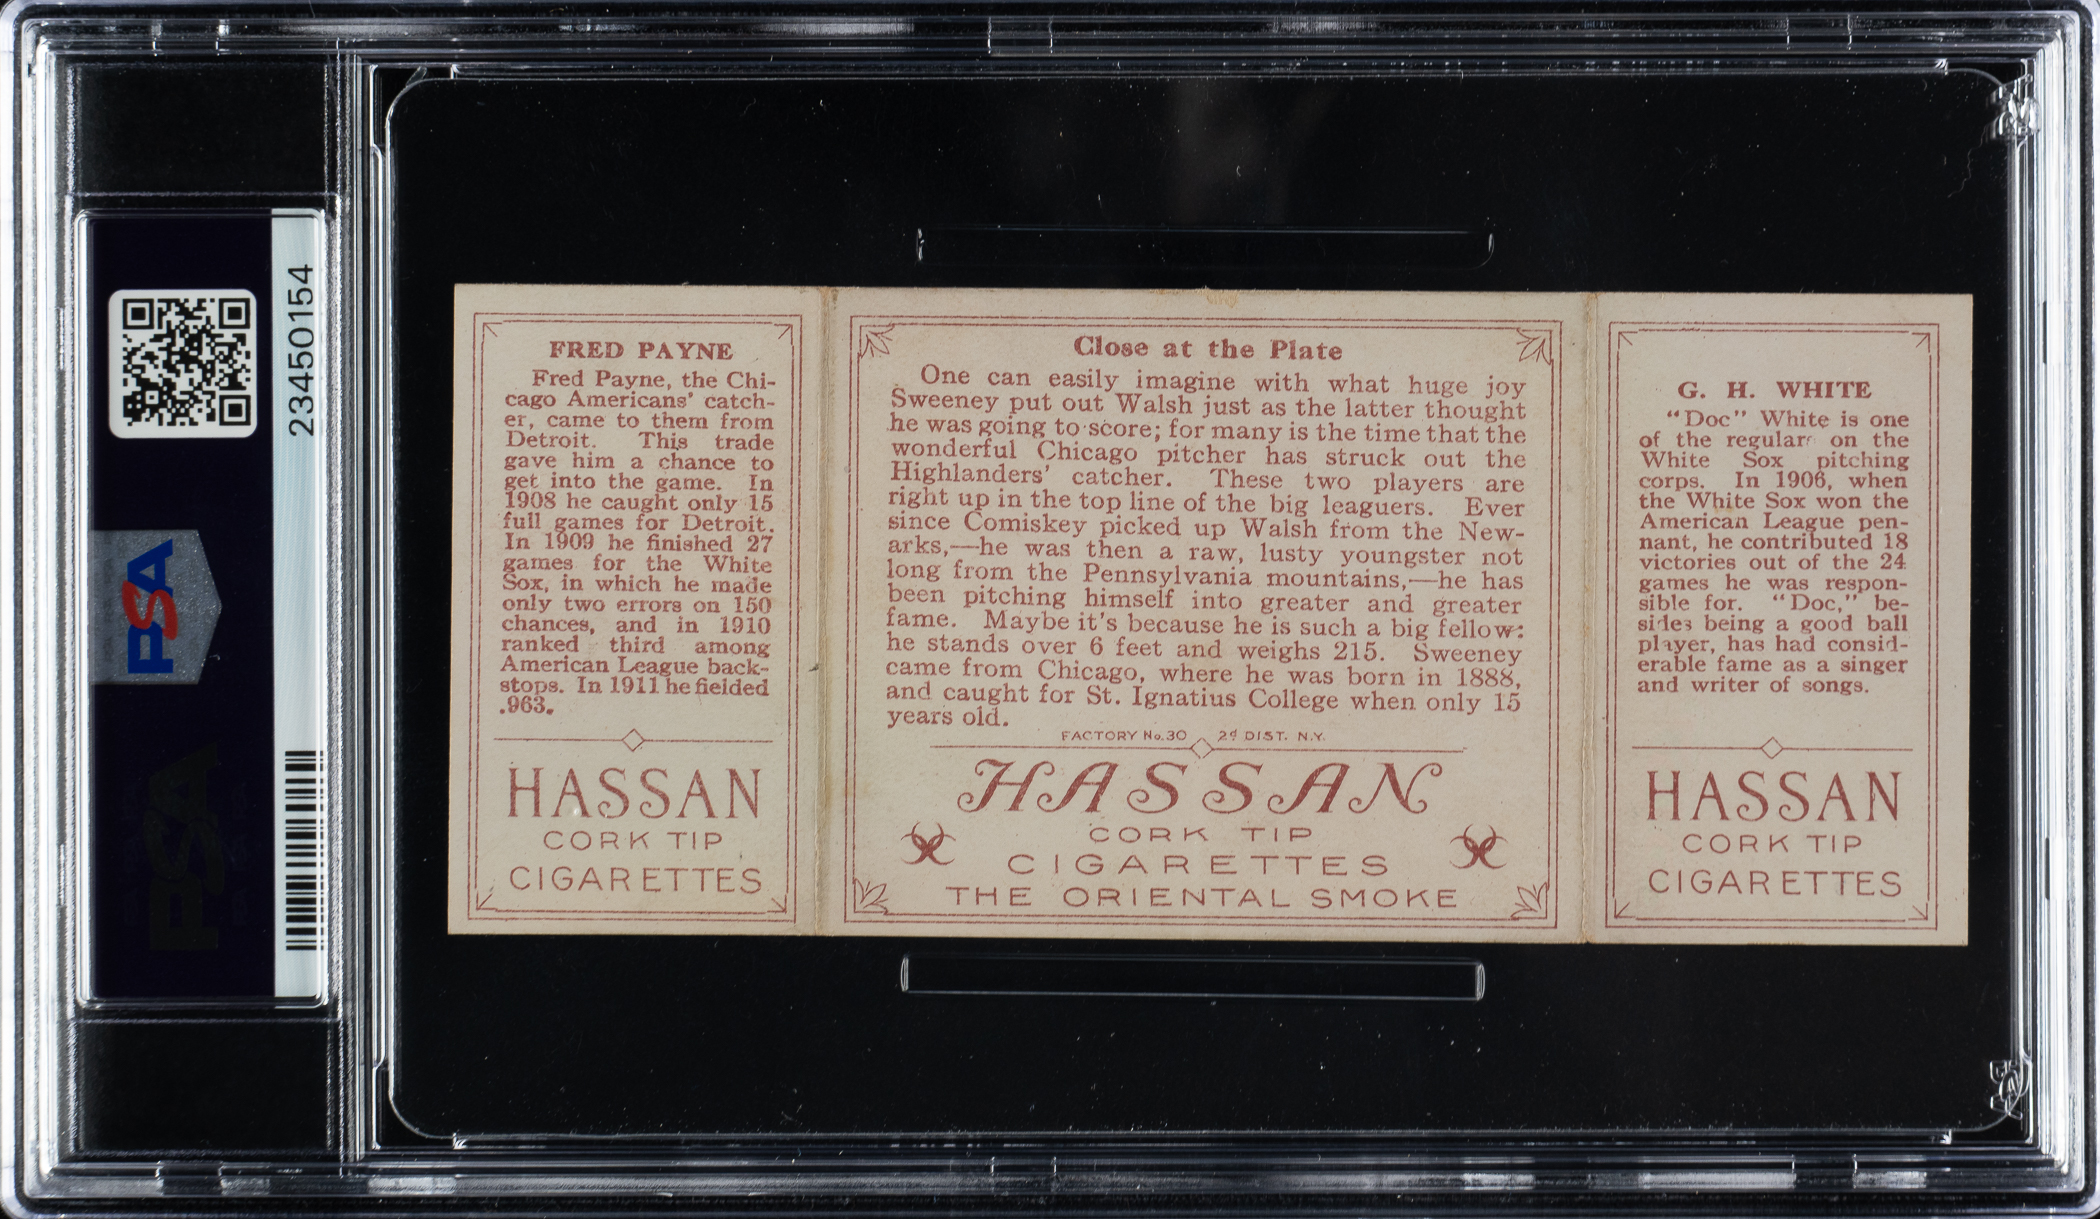 23450154
PSA
PSA
FRED PAYNE
Fred Payne, the Chi-
cago Americans' catch-
er, came to them from
Detroit. This trade
gave him a chance to
get into the game. In
1908 he caught only 15
full games for Detroit.
In 1909 he finished 27
games for the White
Sox, in which he made
only two errors on 150
chances, and in 1910
ranked third among
American League back-
stops. In 1911 he fielded
.963.
HASSAN
CORK TIP
CIGARETTES
Close at the Plate
One can easily imagine with what huge joy
Sweeney put out Walsh just as the latter thought
he was going to score; for many is the time that the
wonderful Chicago pitcher has struck out the
Highlanders' catcher. These two players are
right up in the top line of the big leaguers. Ever
since Comiskey picked up Walsh from the New-
arks,—he was then a raw, lusty youngster not
long from the Pennsylvania mountains,—he has
been pitching himself into greater and greater
fame. Maybe it's because he is such a big fellow:
he stands over 6 feet and weighs 215. Sweeney
came from Chicago, where he was born in 1888,
and caught for St. Ignatius College when only 15
years old.
FACTORY No. 30 2d DIST. N.Y.
HASSAN
CORK TIP
CIGARETTES
THE ORIENTAL SMOKE
G. H. WHITE
"Doc" White is one
of the regulars on the
White Sox pitching
corps. In 1906, when
the White Sox won the
American League pen-
nant, he contributed 18
victories out of the 24
games he was respon-
sible for. "Doc," be-
sides being a good ball
player, has had consid-
erable fame as a singer
and writer of songs.
HASSAN
CORK TIP
CIGARETTES